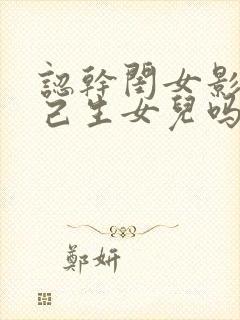 認幹閨女影
己生女兒嗎
鄭妍